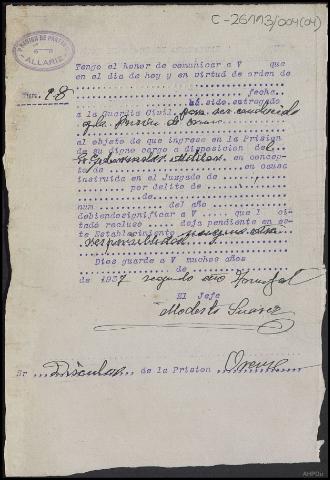 C-26113/004(04)
PRISION DE PARTIDO
ALLARIZ
Tengo el honor de comunicar a V que
en el dia de hoy y en virtud de orden de
fecha
Num. 28 ha sido entregado
a la Guardia Civil para ser conducido
al objeto de que ingrese en la Prision
de su digno cargo a disposicion del
en concep-
to de en causa
instruida en el Juzgado de
por delito de
num del año
debiendosignificar a V que l ci-
tado recluso deja pendiente en es-
te Establecimiento ninguna otra
responsabilidad
Dios guarde a V muchos años
de
de 1937 segundo año Triunfal
El Jefe
Modesto Suarez
Sr Director de la Prision Orense
AHPOu